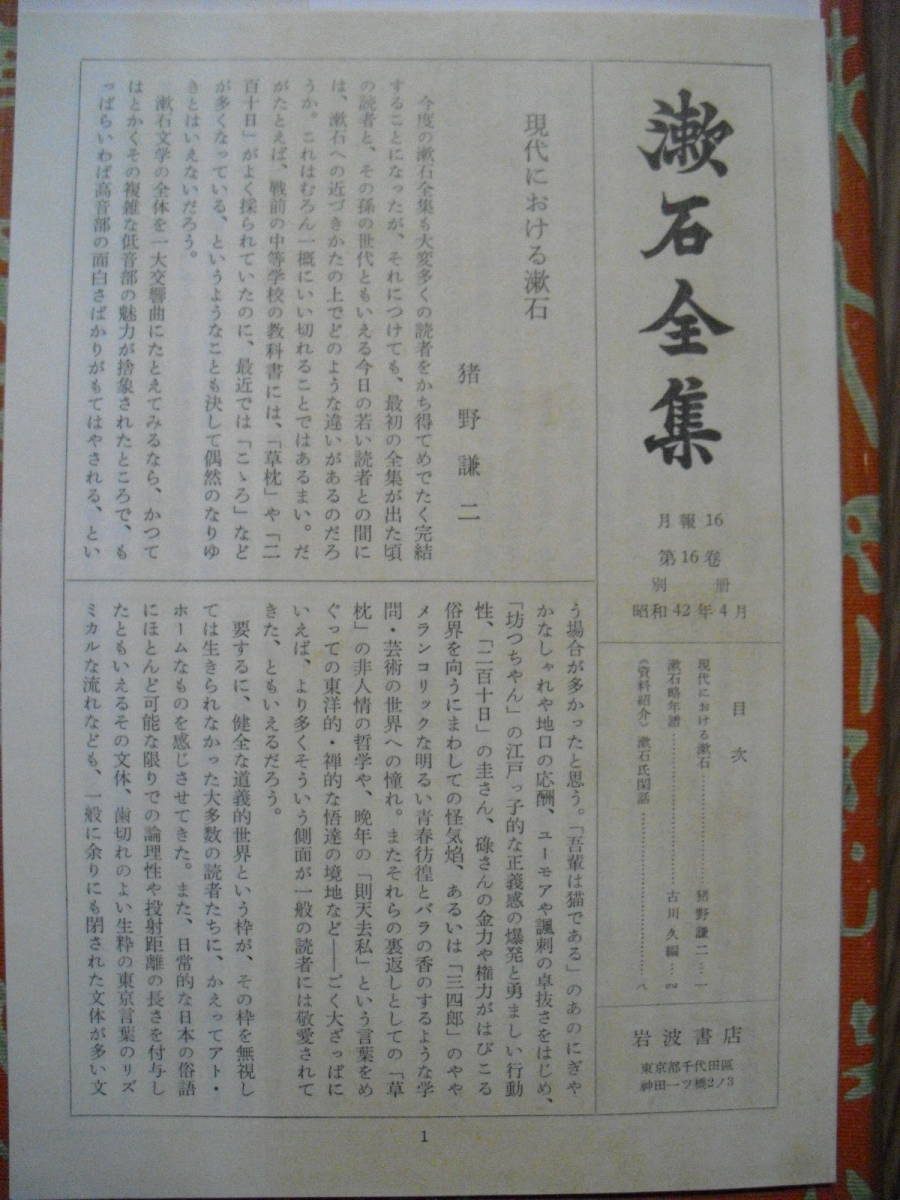 漱石全集
月報16
第16巻
別冊
昭和42年4月
目次
現代における漱石……………猪野謙二…一
漱石略年譜……………古川久編…四
《資料紹介》漱石氏閑話……………八
岩波書店
東京都千代田區
神田一ツ橋2ノ3
現代における漱石
猪野謙二
今度の漱石全集も大変多くの読者をかち得てめでたく完結
することになったが、それにつけても、最初の全集が出た頃
の読者と、その孫の世代ともいえる今日の若い読者との間に
は、漱石への近づきかたの上でどのような違いがあるのだろ
うか。これはむろん一概にいい切れることではあるまい。だ
がたとえば、戦前の中等学校の教科書には、「草枕」や「二
百十日」がよく採られていたのに、最近では「こゝろ」など
が多くなっている、というようなことも決して偶然のなりゆ
きとはいえないだろう。
漱石文学の全体を一大交響曲にたとえてみるなら、かつて
はとかくその複雑な低音部の魅力が捨象されたところで、も
っぱらいわば高音部の面白さばかりがもてはやされる、とい
う場合が多かったと思う。「吾輩は猫である」のあのにぎや
かなしゃれや地口の応酬、ユーモアや諷刺の卓抜さをはじめ、
「坊つちやん」の江戸っ子的な正義感の爆発と勇ましい行動
性、「二百十日」の圭さん、碌さんの金力や権力がはびこる
俗界を向うにまわしての怪気焔、あるいは「三四郎」のやや
メランコリックな明るい青春彷徨とバラの香のするような学
問・芸術の世界への憧れ。またそれらの裏返しとしての「草
枕」の非人情の哲学や、晩年の「則天去私」という言葉をめ
ぐっての東洋的・禅的な悟達の境地など——ごく大ざっぱに
いえば、より多くそういう側面が一般の読者には敬愛されて
きた、ともいえるだろう。
要するに、健全な道義的世界という枠が、その枠を無視し
ては生きられなかった大多数の読者たちに、かえってアト・
ホームなものを感じさせてきた。また、日常的な日本の俗語
にほとんど可能な限りでの論理性や投射距離の長さを付与し
たともいえるその文体、歯切れのよい生粋の東京言葉のリズ
ミカルな流れなども、一般に余りにも閉された文体が多い文
1